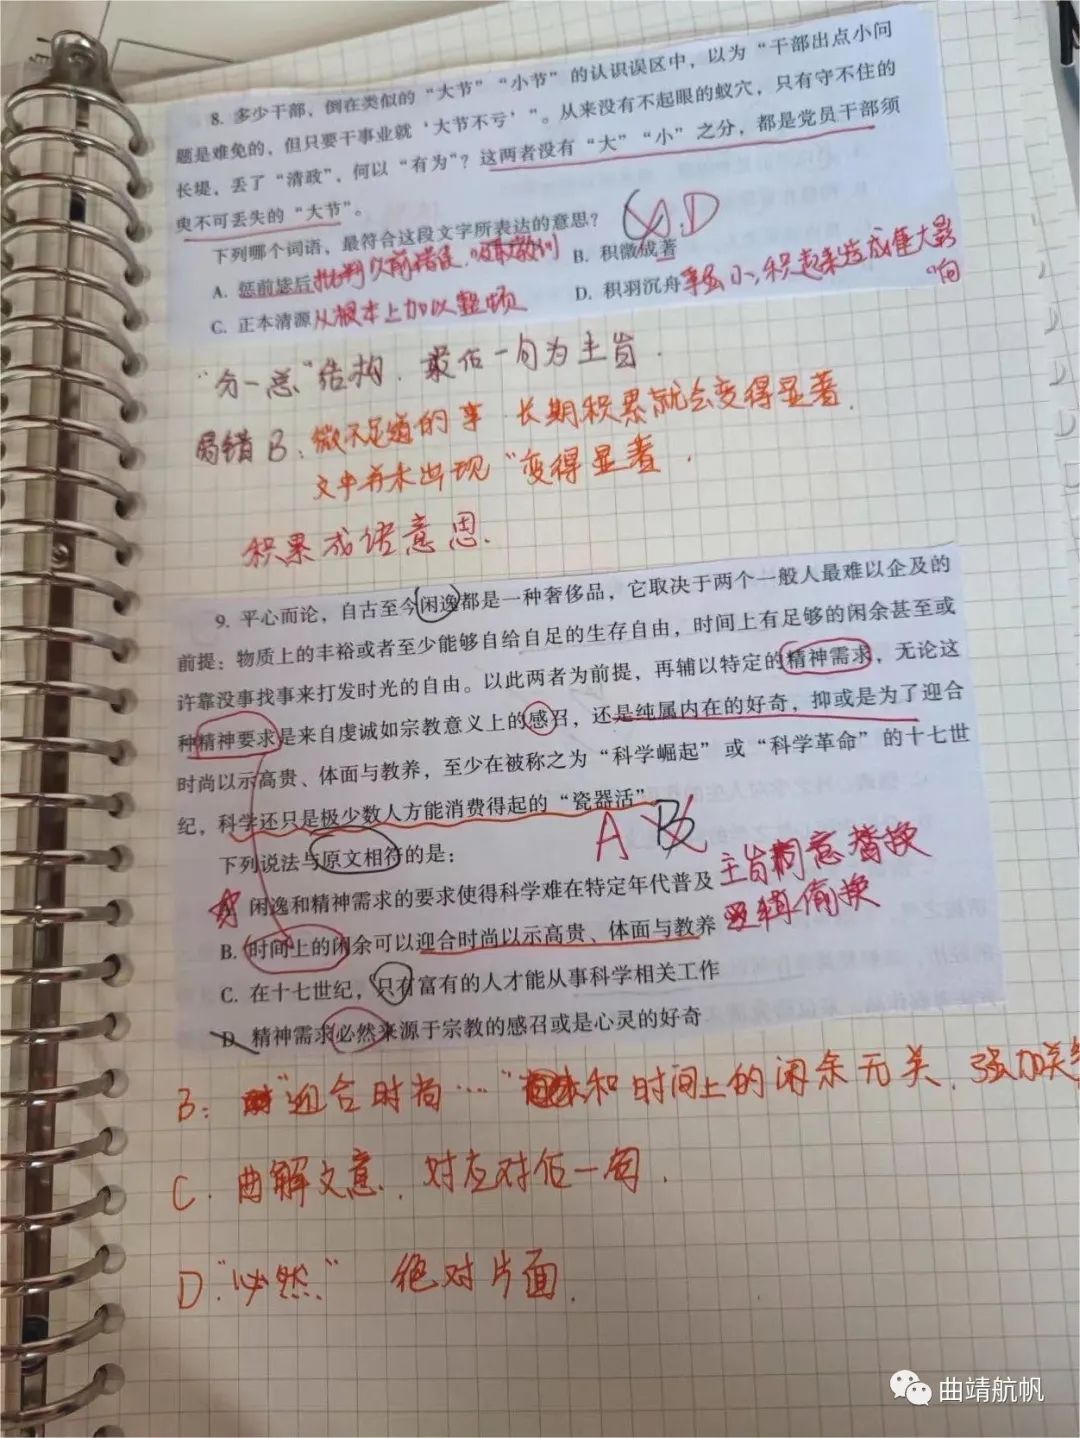 8. 多少干部，倒在类似的“大节”“小节”的认识误区中，以为“干部出点小问
题是难免的，但只要干事业就‘大节不亏’”。从来没有不起眼的蚁穴，只有守不住的
长堤，丢了“清政”，何以“有为”？这两者没有“大”“小”之分，都是党员干部须
臾不可丢失的“大节”。
下列哪个词语，最符合这段文字所表达的意思？
D
A. 惩前毖后 批判以前错误，吸取教训 B. 积微成著
C. 正本清源 从根本上加以整顿 D. 积羽沉舟 事虽小，积起来造成重大影
响
“分一总”结构，最后一句为主旨．
易错B：微不足道的事 长期积累就会变得显著．
文中并未出现“变得显著．
积累成语意思．
9. 平心而论，自古至今闲逸都是一种奢侈品，它取决于两个一般人最难以企及的
前提：物质上的丰裕或者至少能够自给自足的生存自由，时间上有足够的闲余甚至或
许靠没事找事来打发时光的自由。以此两者为前提，再辅以特定的精神需求，无论这
种精神要求是来自虔诚如宗教意义上的感召，还是纯属内在的好奇，抑或是为了迎合
时尚以示高贵、体面与教养，至少在被称之为“科学崛起”或“科学革命”的十七世
纪，科学还只是极少数人方能消费得起的“瓷器活”
A B
下列说法与原文相符的是：
闲逸和精神需求的要求使得科学难在特定年代普及 主旨 同意替换
B. 时间上的闲余可以迎合时尚以示高贵、体面与教养 逻辑偷换
C. 在十七世纪，只有富有的人才能从事科学相关工作
D. 精神需求必然来源于宗教的感召或是心灵的好奇
B： “迎合时尚…” 和时间上的闲余无关，强加关
C． 曲解文意，对应对后一句．
D “必然” 绝对片面．
曲靖航帆